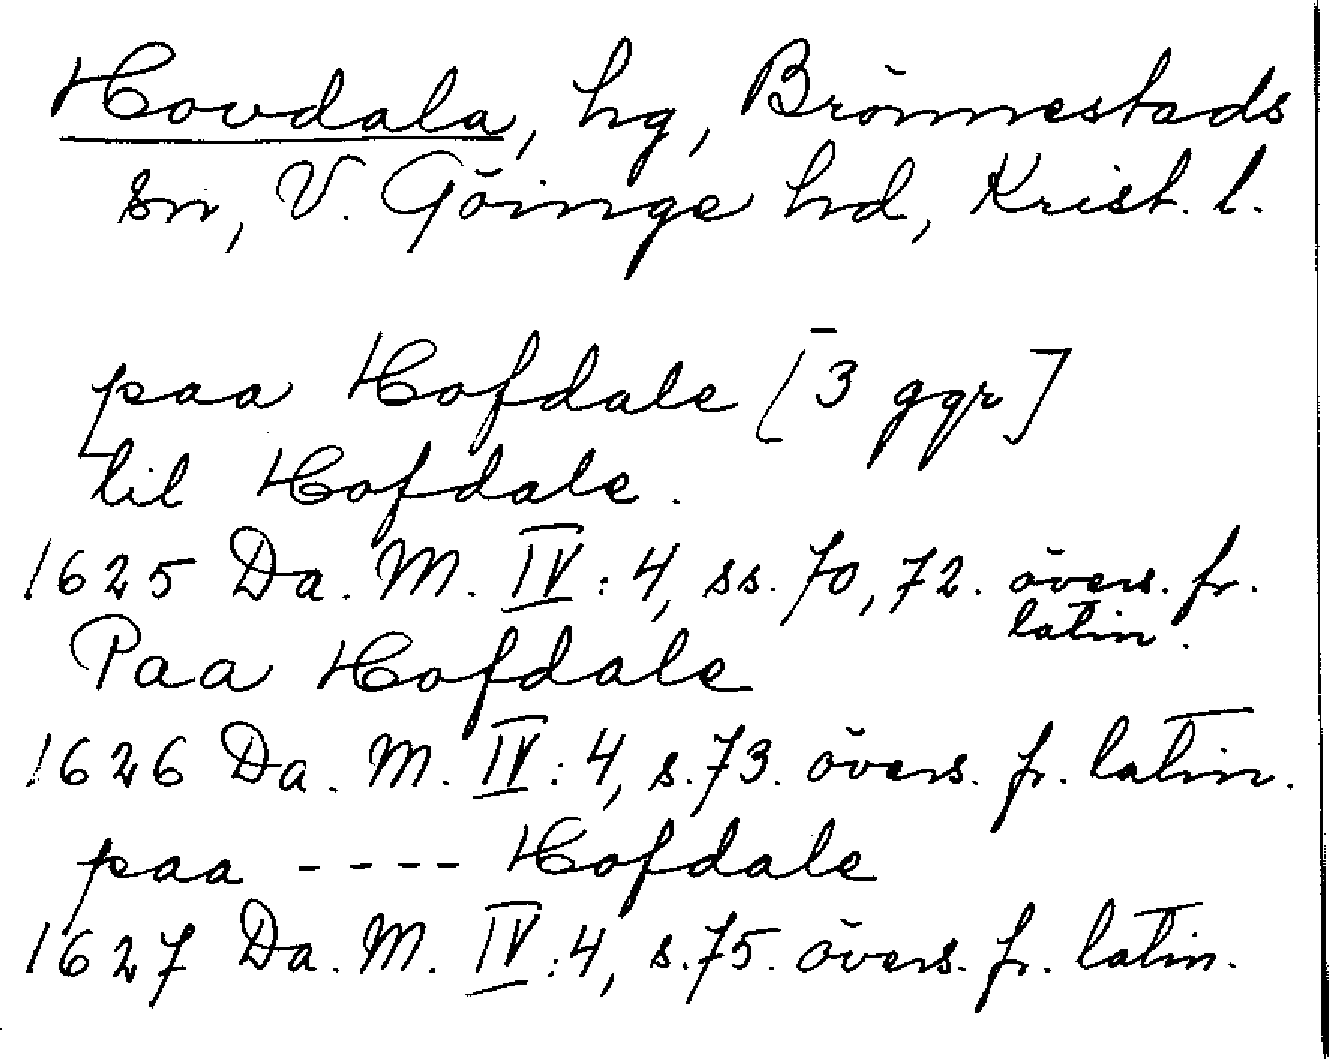 Hovdala, hg, Brönnestads
sn, V. Göinge hd, Krist. l.
paa Hofdale [3 ggr]
til Hofdale.
1625 Da. M. IV: 4, ss. 70, 72. övers. fr. latin.
Paa Hofdale
1626 Da. M. IV: 4, s. 73. övers. fr. latin.
paa - - - - Hofdale
1627 Da. M. IV: 4, s. 75. övers. fr. latin.